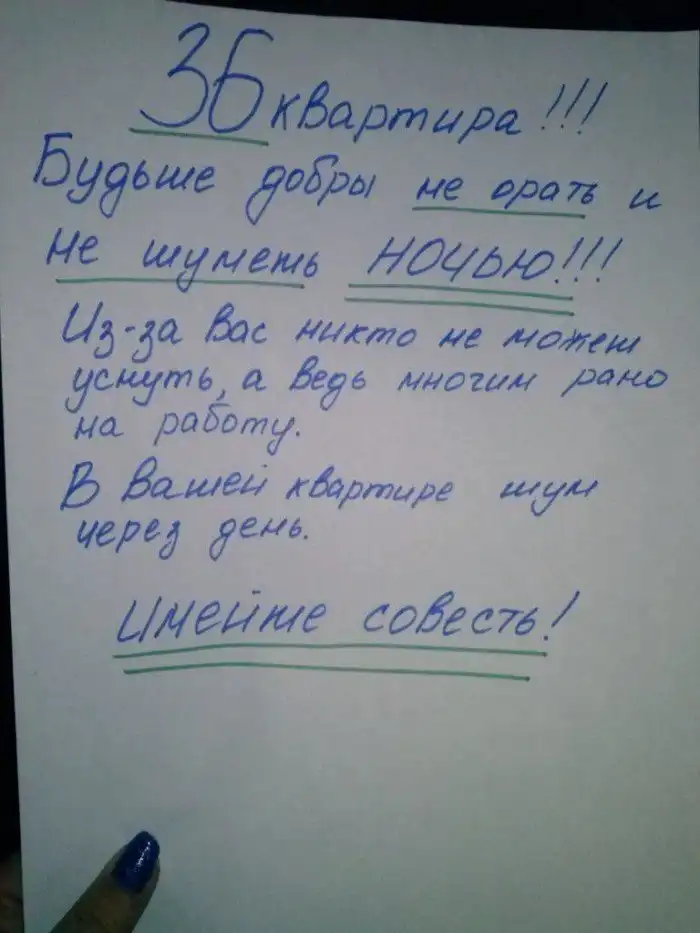 36 квартира!!!
Будьте добры не орать и
не шуметь НОЧЬЮ!!!
Из-за Вас никто не может
уснуть, а ведь многим рано
на работу.
В Вашей квартире шум
через день.
Имейте совесть!